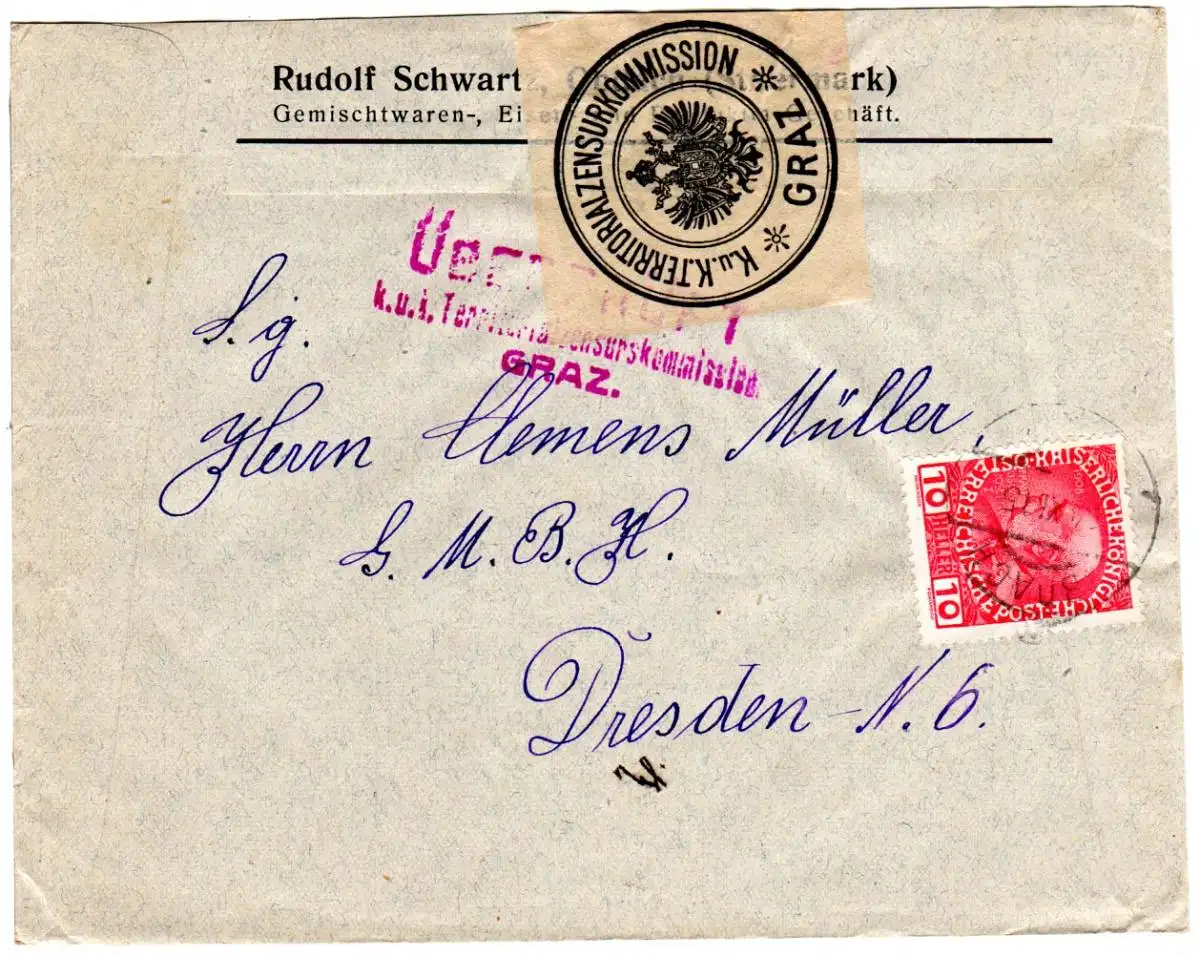 Rudolf Schwartz, (Steiermark)
Gemischtwaren-, Eisen- und geschäft.
K.u.K. TERRITORIALZENSURKOMMISSION
GRAZ
Ueberprüft
k.u.k. Territorialzensurskommission
GRAZ.
S. g.
Herrn Clemens Müller,
G. M. B. H.
Dresden-N. 6.
KAISERLICHEKÖNIGLICHE
ÖSTERREICHISCHEPOST
10 HELLER 10